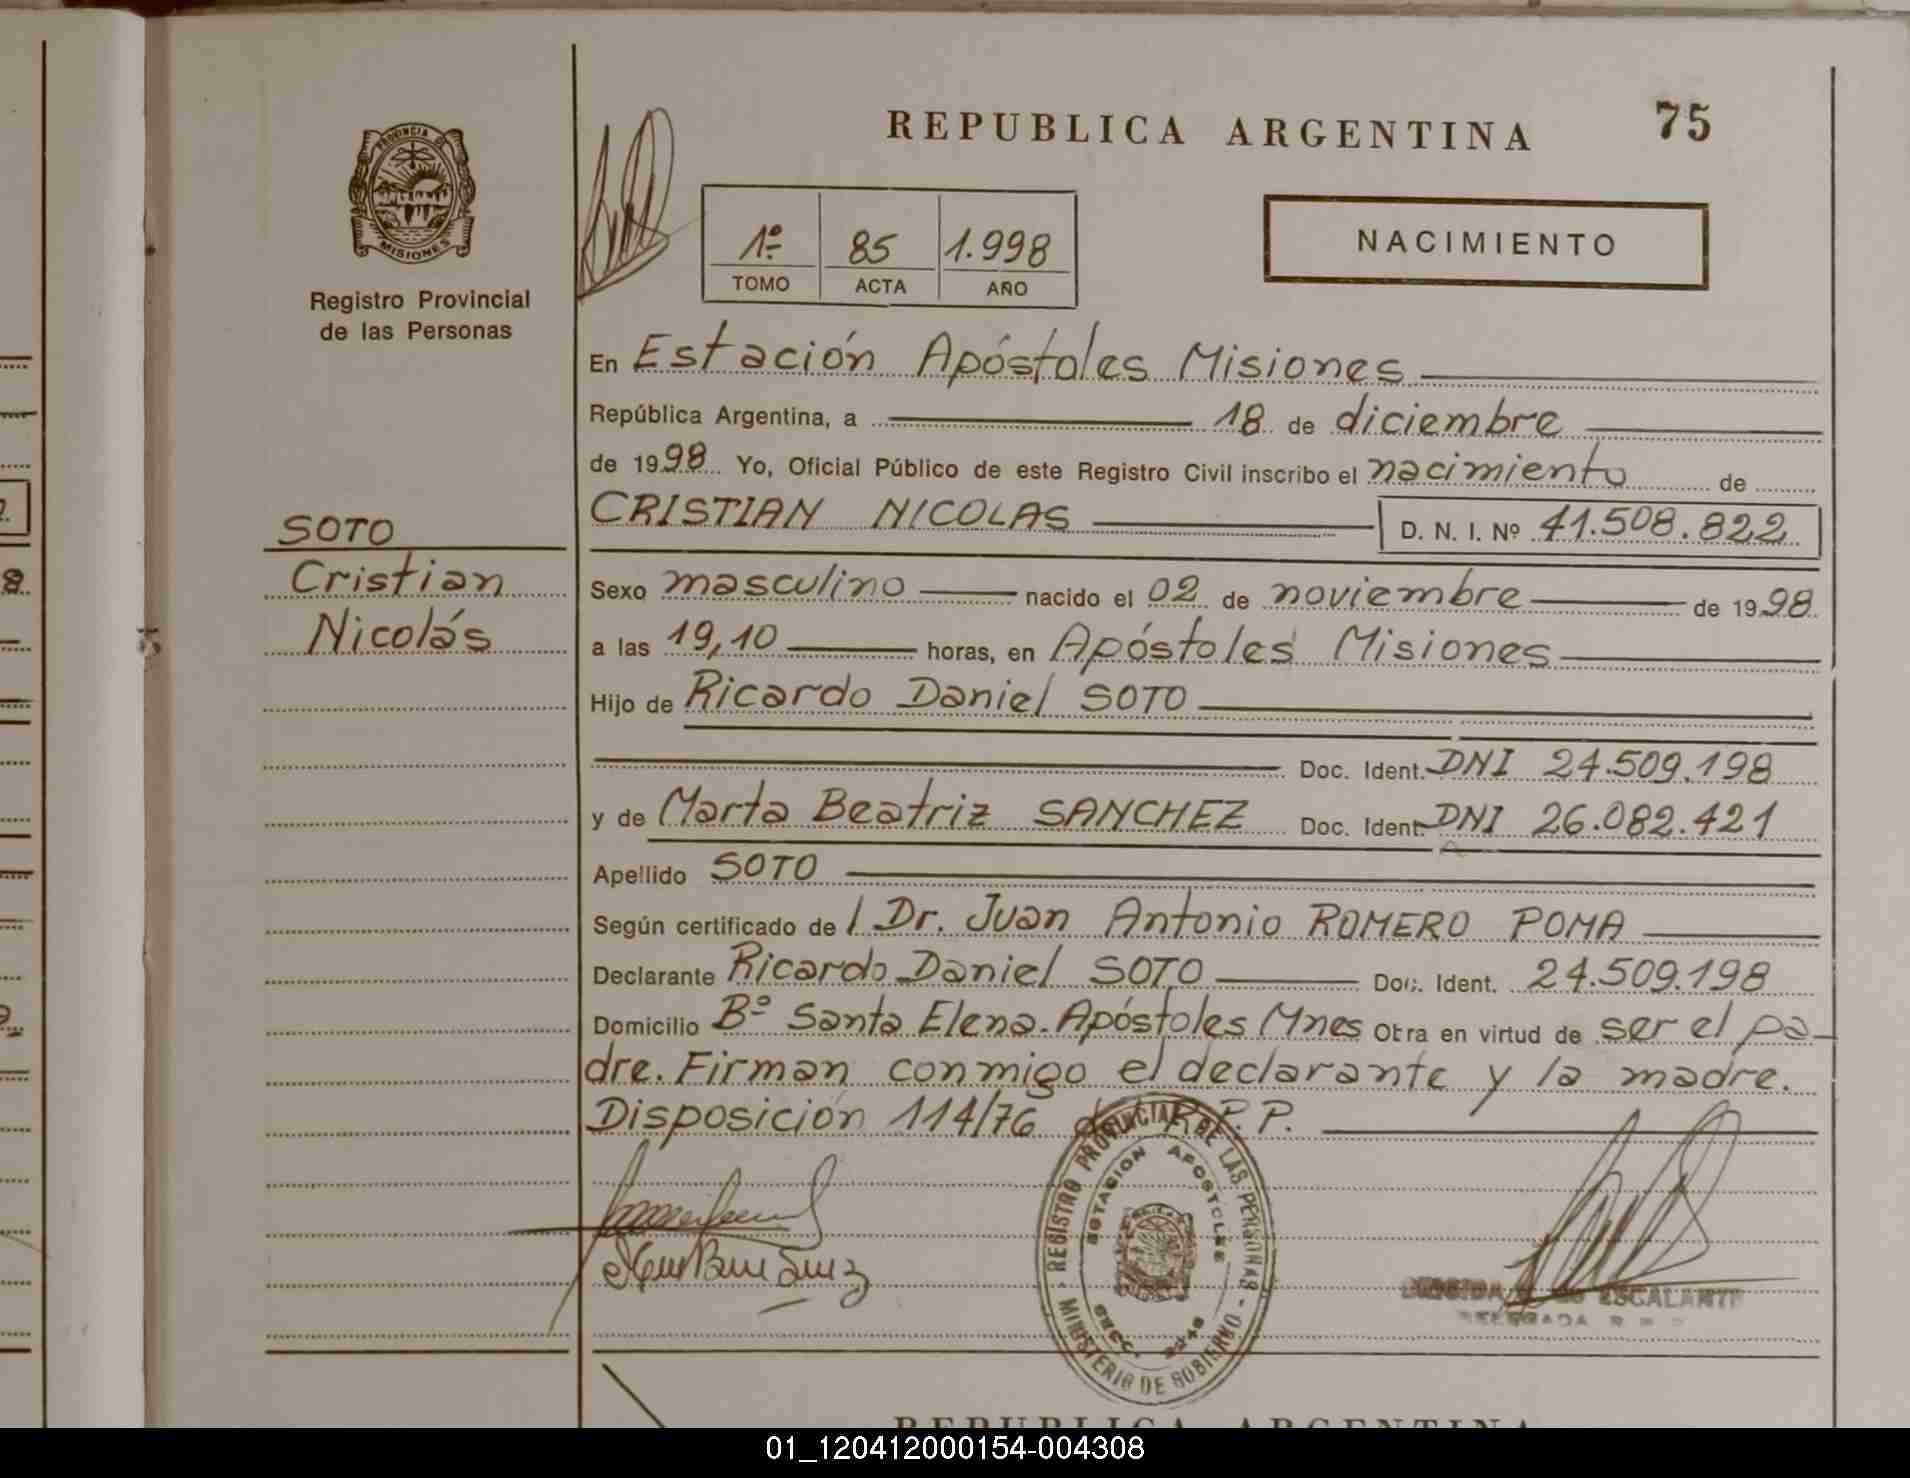 PROVINCIA DE
MISIONES
Registro Provincial
de las Personas
SOTO
Cristian
Nicolás
REPUBLICA ARGENTINA 75
1º 85 1.998
TOMO ACTA AÑO
NACIMIENTO
En Estación Apóstoles Misiones
República Argentina, a 18 de diciembre
de 1998 Yo, Oficial Público de este Registro Civil inscribo el nacimiento de
CRISTIAN NICOLAS D. N. I. Nº 41.508.822
Sexo masculino nacido el 02 de noviembre de 1998
a las 19,10 horas, en Apóstoles Misiones
Hijo de Ricardo Daniel SOTO
Doc. Ident. DNI 24.509.198
y de Marta Beatriz SANCHEZ Doc. Ident. DNI 26.082.421
Apellido SOTO
Según certificado de l Dr. Juan Antonio ROMERO POMA
Declarante Ricardo Daniel SOTO Doc. Ident. 24.509.198
Domicilio Bº Santa Elena. Apóstoles Mnes Obra en virtud de ser el pa-
dre. Firman conmigo el declarante y la madre.
Disposición 114/76 del R.P.P.
REGISTRO PROVINCIAL DE LAS PERSONAS - MINISTERIO DE GOBIERNO -
ESTACION APOSTOLES
SECC.
ESCALANTE
DELEGADA R. P. P.
REPUBLICA ARGENTINA
01_120412000154-004308